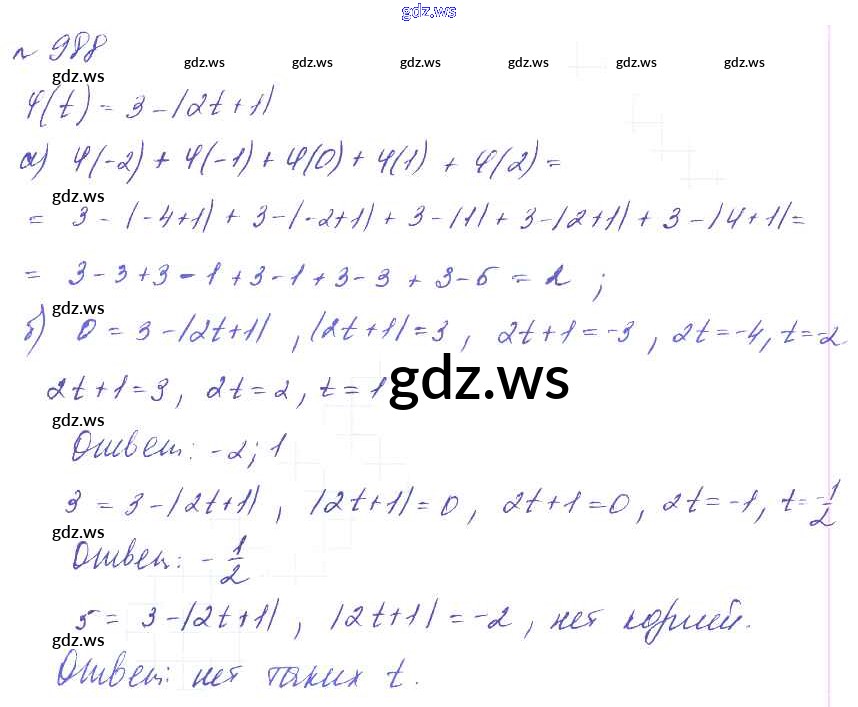 gdz.ws
№ 988
gdz.ws gdz.ws gdz.ws gdz.ws gdz.ws gdz.ws
gdz.ws
φ(t) = 3 - |2t + 1|
а) φ(-2) + φ(-1) + φ(0) + φ(1) + φ(2) =
gdz.ws
= 3 - |-4+1| + 3 - |-2+1| + 3 - |1| + 3 - |2+1| + 3 - |4+1| =
= 3 - 3 + 3 - 1 + 3 - 1 + 3 - 3 + 3 - 5 = 2 ;
gdz.ws
б) 0 = 3 - |2t+1| , |2t+1| = 3 , 2t+1 = -3 , 2t = -4, t = -2
2t+1 = 3, 2t = 2, t = 1
gdz.ws
gdz.ws
Ответ: -2; 1
3 = 3 - |2t+1| , |2t+1| = 0 , 2t+1 = 0 , 2t = -1 , t = -1/2
gdz.ws
Ответ: - 1/2
5 = 3 - |2t+1| , |2t+1| = -2 , нет корней.
gdz.ws
Ответ: нет таких t.